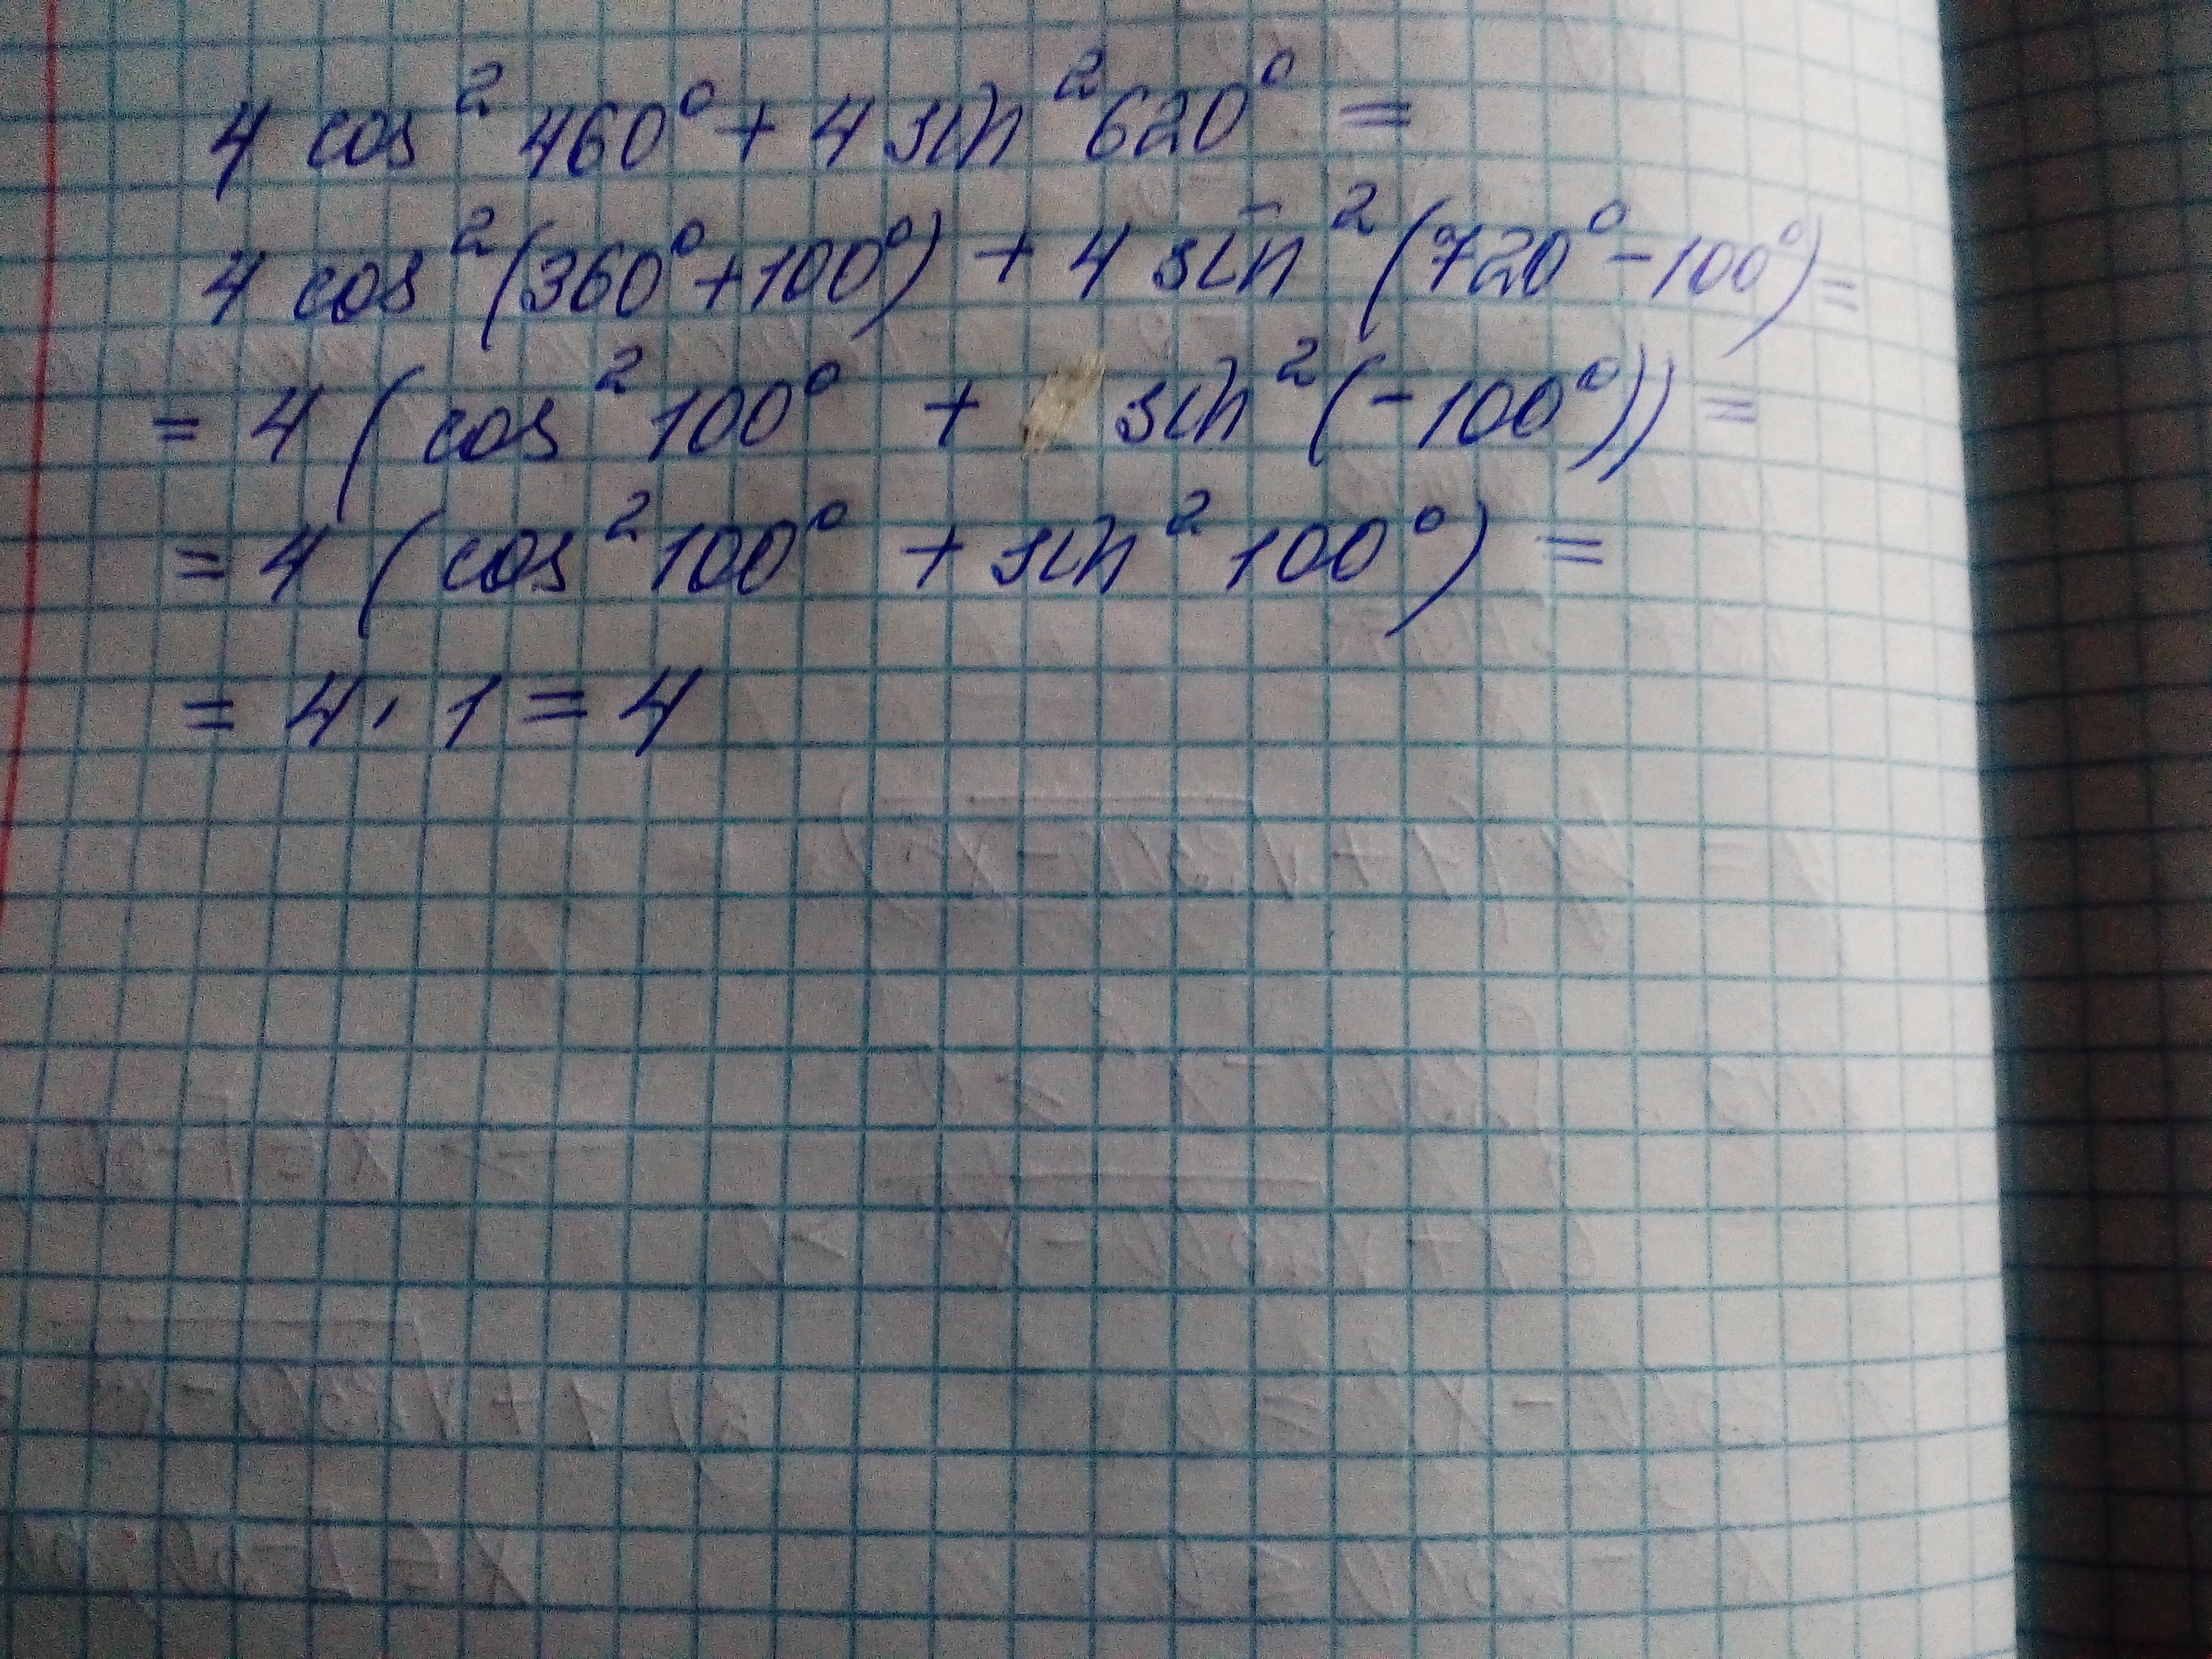 4 cos² 460° + 4 sin² 620° =
4 cos² (360° + 100°) + 4 sin² (720° - 100°) =
= 4 (cos² 100° + sin² (-100°)) =
= 4 (cos² 100° + sin² 100°) =
= 4 · 1 = 4